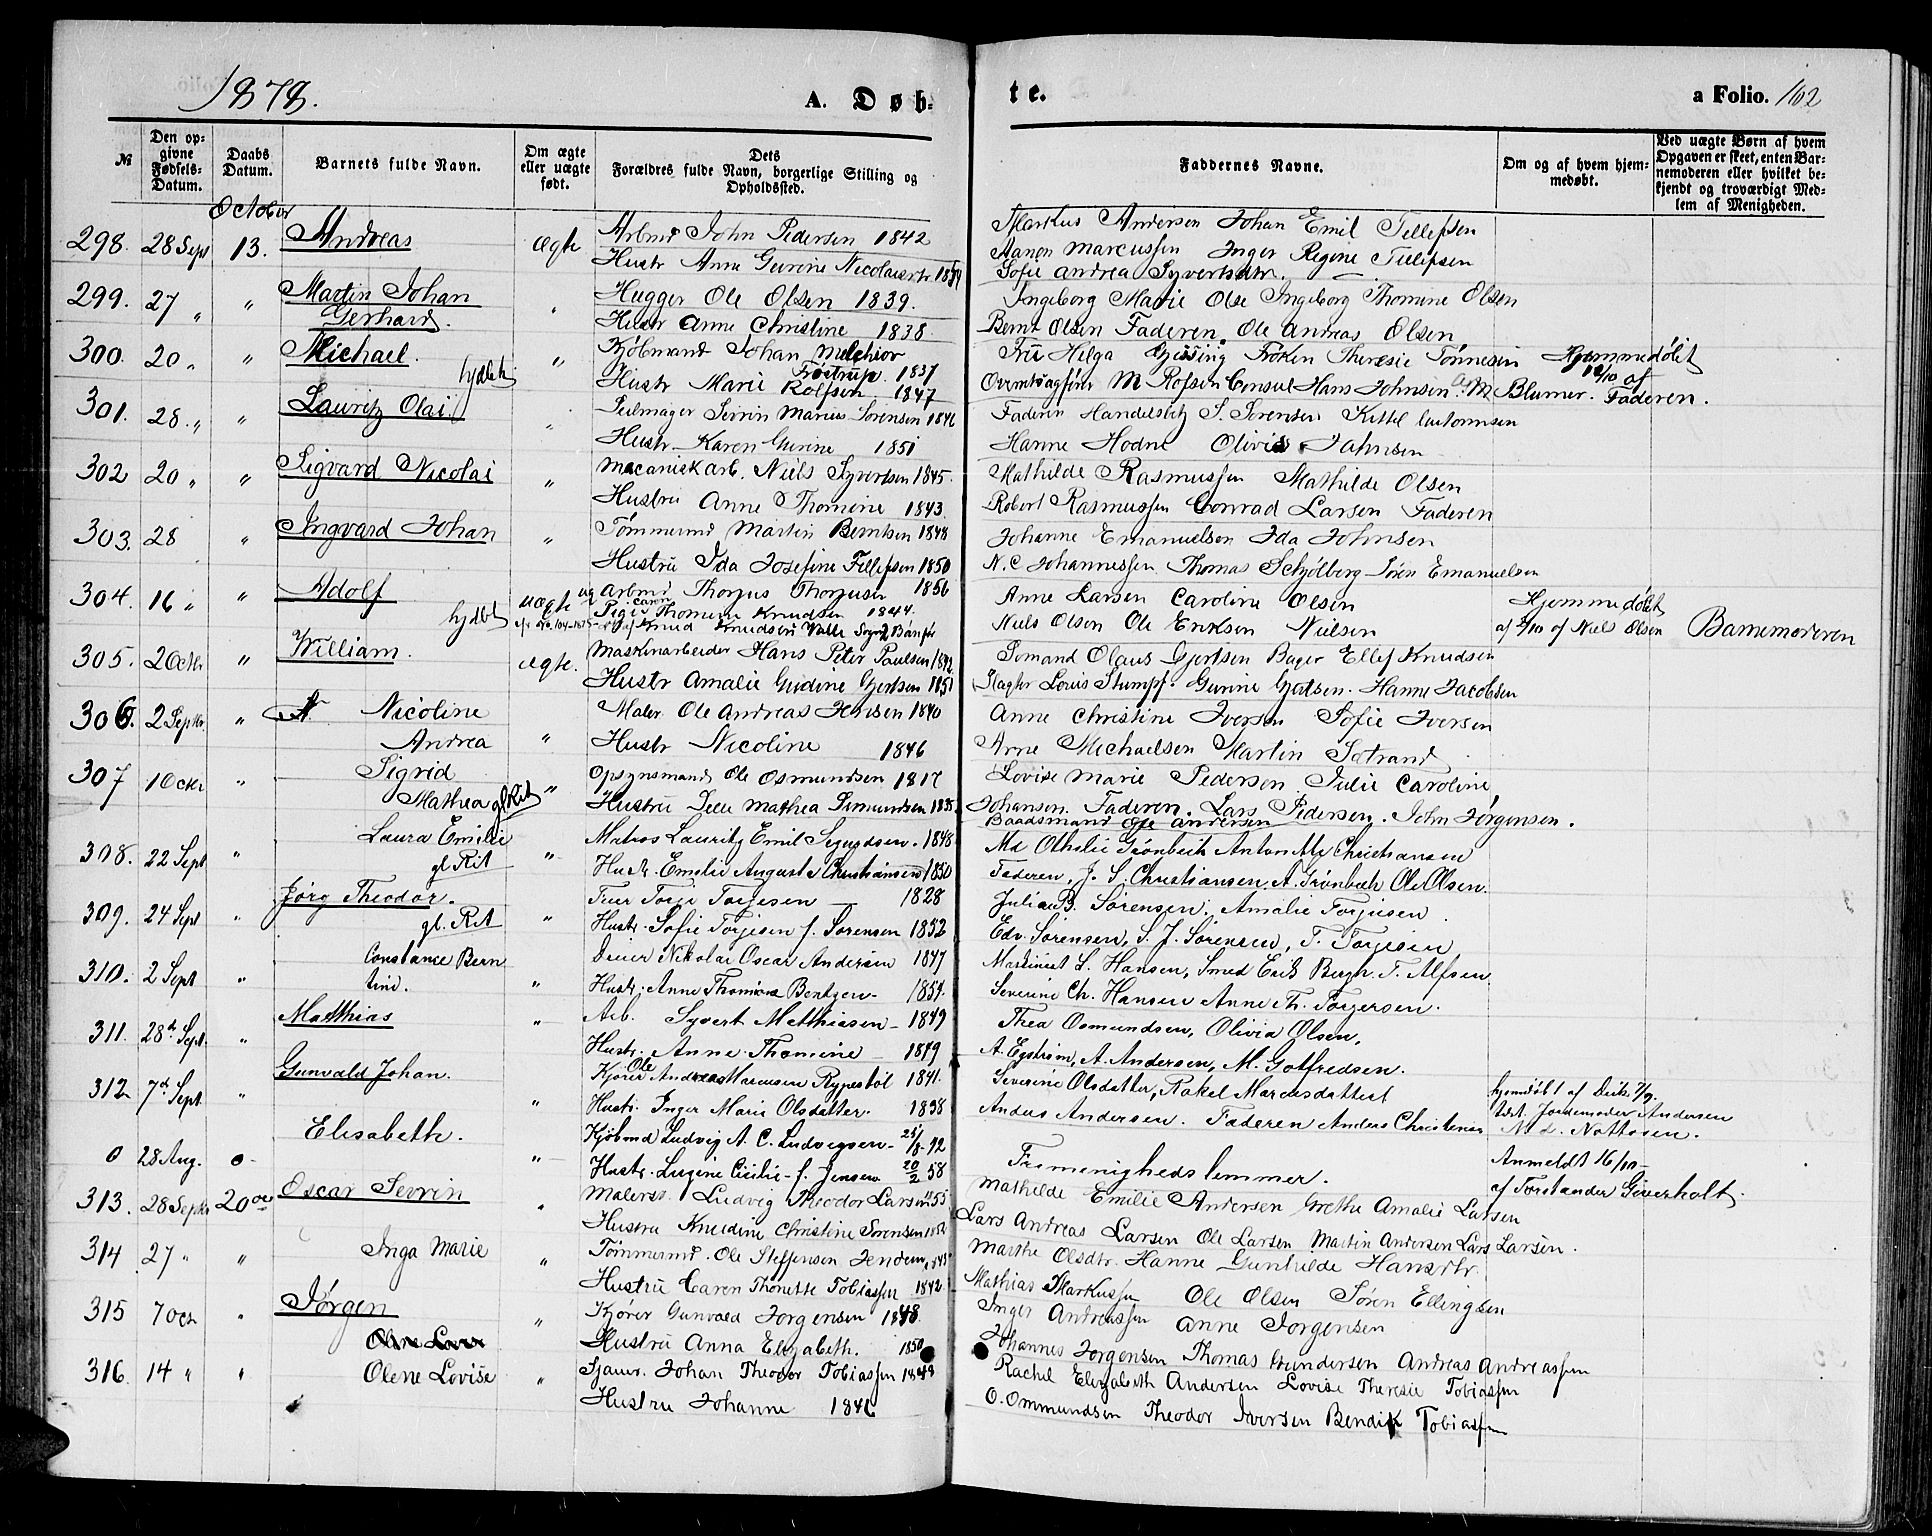 1878.
A. Døb-
te.
a Folio. 162
№
Den opgivne Fødsels-Datum.
Daabs Datum.
Barnets fulde Navn.
Om ægte eller uægte født.
Dets Forældres fulde Navn, borgerlige Stilling og Opholdssted.
Faddernes Navne.
Om og af hvem hjemmedøbt.
Ved uægte Børn af hvem Opgaven er skeet, enten Barnemoderen eller hvilket bekjendt og troværdigt Medlem af Menigheden.
October
298. 28 Sept 13. Andreas ægte Arbmd John Pedersen 1842
Hustr Anne Gurine Nicolaisdtr
Markus Andersen Johan Emil Tellefsen
Aanon Marcussen Inger Regine Tellefsen
Sofie Andrea Syvertsdtr.
299. 27 " " Martin Johan Gerhard. " Hugger Ole Olsen 1839.
Hustr Anne Christine 1838
Ingeborg Marie Olse Ingeborg Thomine Olsen
Bernt Olsen Faderen. Ole Andreas Olsen
300. 20 " " Michael. hjdbt " Kjøbmand Johan Melchior Frøstrup. 1837
Hustr Marie Rolfsen 1847
Fru Helga Frøken Theresie Tønnesen
M Rofsen Consul Hans Johnsen M Blumer. Faderen.
Hjemmedøbt 12/10 af
301. 28 " " Lauritz Olai. " Seilmager Servin Marius Sørensen 1846
Hustr Karen Gurine 1851
Faderen S. Sørensen Kittel
Hanne Hodne Olivia Jahnsen
302 20 " " Sigvard Nicolai " Mecaniskarb. Niels Syvertsen 1845.
Hustru Anne Thomine 1843.
Mathilde Rasmussen Mathilde Olsen
Robert Rasmussen Conrad Larsen Faderen
303. 28 " Ingvard Johan " Tømmermd Martin Berntsen 1848
Hustru Ida Josefine Tellefsen 1850
Johanne Emanuelsen Ida Johnsen
N. C Johannessen. Thomas Schjølberg Søren Emanuelsen
304. 16 " " Adolf hjdbt uægte ug Arbmd Thorjus Thorjusen 1856
Pige Thomine Knudsen 1844.
Knud Knudsen Valle
Anne Larsen Caroline Olsen
Niels Olsen Ole Eriksen Nielsen
Hjemmedøbt
af Niels Olsen
Barnemoderen
305. 2 Octr " William. ægte. Maskinarbeider Hans Peter Paulsen 1842
Hustr Amalie Gudine Gjertsen 1851
Sømand Olaus Gjertsen Bager Ellef Knudsen
Slagter Louis Stumpf. Gurine Gjertsen. Hanne Jacobsen
306. 2 Septr. " Nicoline
Andrea " Maler Ole Andreas Iversen 1840
Hustr Nicoline 1846
Anne Christine Iversen Sofie Iversen
Arne Michaelsen Martin Sætrand
307 1 Octr " Sigrid
Mathea gl. Rit " Opsynsmand Ole Osmundsen 1817
Hustru Mathea 1835
Lovise Marie Pedersen Julie Caroline
Johansen. Faderen. Lars Pedersen. John Jørgensen.
Baadsmand Ole Andersen
308. 22 Sept " Laura Emilie
gl. Rit " Matros Lauritz Emil 1848
Hustr. Emelie Augusta Christiansen 1850
Md Othilie Grønbech Anton Christiansen
Faderen, J. S. Christiansen, A. Grønbech Ole Olsen.
309. 24 Sept " Jørg Theodor.
gl. Rit " Torje Torjesen — 1828
Hustr. Sofie Torjesen f. Sørensen 1832
Julia B. Sørensen. Amalie Torjusen.
Edv. Sørensen, S. J. Sørensen, T. Torjesen
310. 2 Sept " Constance Bern
tine. " Dreier Nikolai Oscar Andersen 1847
Hustr. Anne Thomine Bentzen. 1851.
L. Hansen, Smed Erik Bergh. T. Alfsen.
Severine Ch. Hansen Anne Th. Torgersen.
311. 28d. Sept. " Matthias " Arb. Syvert Matthiasen - 1849
Hustr. Anne Thomine — 1849
Thea Osmundsen, Olivia Olsen,
A. Egstrøm, A. Andersen, M. Gotfredsen.
312 7d. Sept. " Gunvald Johan. " Kjører Ole Andreas Marcusen Rypestøl 1841.
Hustr. Inger Marie Olsdatter. 1838
Severine Olsdatter, Rakel Marcusdatter
Anders Andersen. Faderen Anders Christensen
hjemdøbt af
Jordemoder Andersen
Md. Nottosen.
0 28 Aug. 0- Elisabeth. " Kjøbmd Ludvig A. C. Ludvigsen
Hustr. Lugine Cicilie f. Jensen 20/2 58
Frimenighedslemmer.
Anmeldt 16/10
af Forstander
313. 28 Septr 20de Oscar Sevrin " Malers. Ludvig Theodor Larsen 55
Hustru Knudine Christine Sørensen
Mathilde Emilie Andersen Grethe Amalie Larsen
Lars Andreas Larsen Ole Larsen Martin Andersen Lars Larsen.
314 27 " " Inga Marie " Tømmermd. Ole Steffensen
Hustru Caren Thonette Tobiassen 1842
Marthe Olsdtr. Hanne Gunhilde Hansdtr.
Mathias Markussen Ole Olsen Søren Ellingsen
315 7 Oct " Jørgen " Kjører Gunvald Jorgensen 1848.
Hustru Anna Elizabeth. 1850
Inger Andreassen Anne Jorgensen
Johannes Jorgensen Thomas Gundersen Andreas Andreassen
316. 14 " " Olene Lovise " Sjaur. Johan Theodor Tobiassen 1848
Hustru Johanne 1846
Rachel Elizabeth Andersen Lovise Theresie Tobiassen
O. Ommundsen Theodor Iversen Bendik Tobiassen